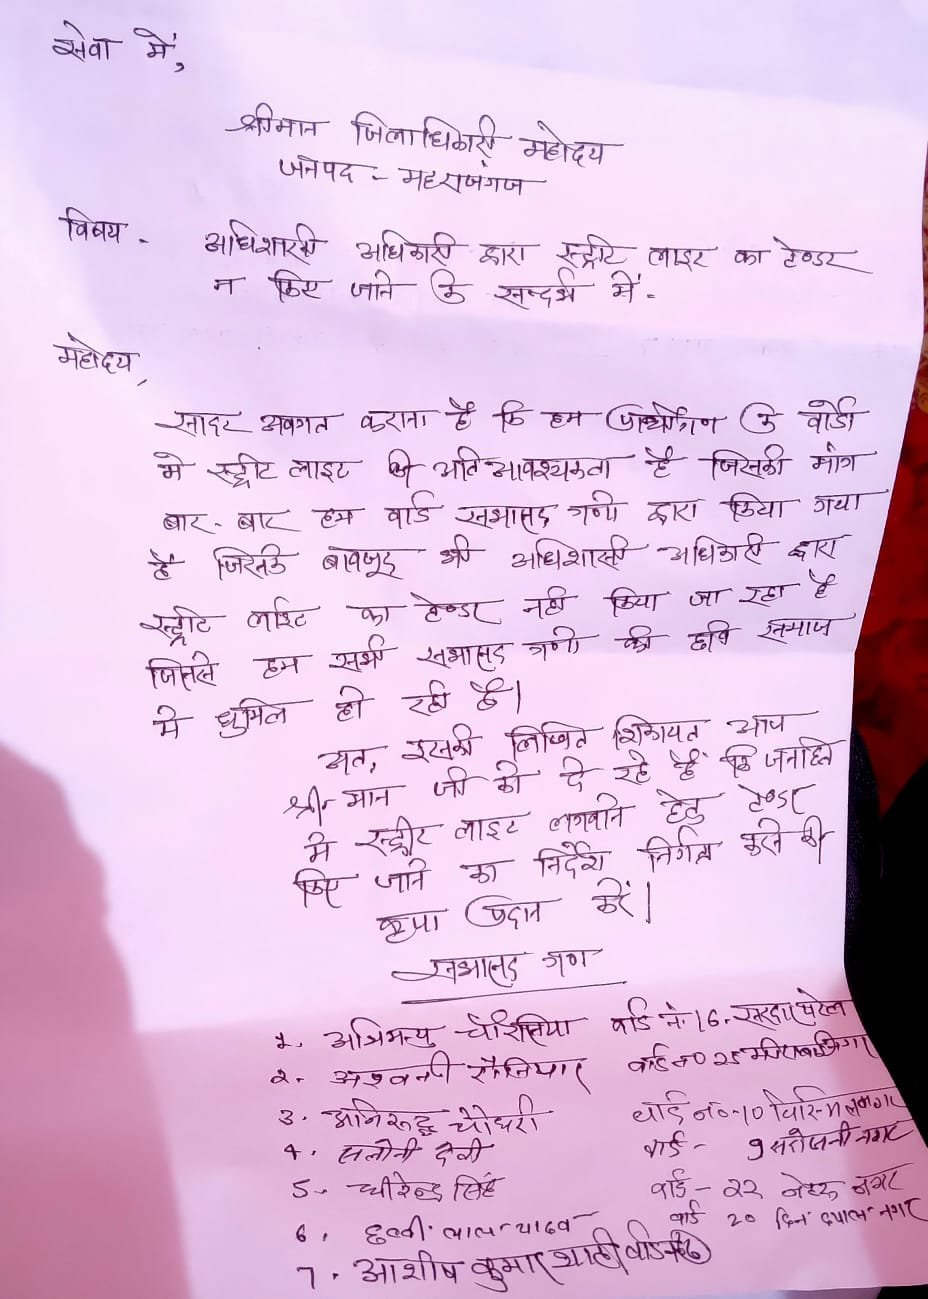 सेवा में,
श्रीमान जिलाधिकारी महोदय
जनपद - महराजगंज
विषय - अधिशासी अधिकारी द्वारा स्ट्रीट लाइट का टेण्डर
न किए जाने के सन्दर्भ में -
महोदय,
सादर अवगत कराना है कि हम के वार्डो
मे स्ट्रीट लाइट की अति आवश्यकता है जिसकी मांग
बार-बार हम वार्ड सभासद गणो द्वारा किया गया
है जिसके बावजूद भी अधिशासी अधिकारी द्वारा
स्ट्रीट लाईट का टेण्डर नही किया जा रहा है
जिससे हम सभी सभासद गणो की छवि समाज
मे धुमिल हो रही है।
अत, इसकी लिखित शिकायत आप
श्री-मान जी को दे रहे हैं कि जनहित
मे स्ट्रीट लाइट लगवाने हेतु टेण्डर
किए जाने का निर्देश निर्गत करने की
कृपा प्रदान करें।
सभासद गण
1. अभिमन्यु वार्ड नं. 16. सरदार पटेल
2. अश्वनी वार्ड न० 25
3. अनिरूद्ध चौधरी वार्ड नं०-10
4. सलोनी देवी वार्ड - 9 नगर
5. धीरेन्द्र सिंह वार्ड - 22 नेहरू नगर
6. छब्बी लाल यादव वार्ड 20 दिन दयाल नगर
7. आशीष कुमार शाही